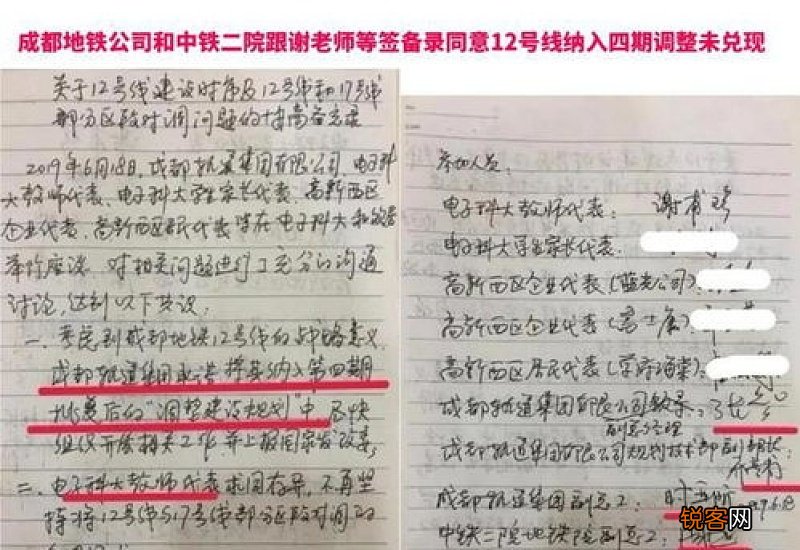 成都地铁公司和中铁二院跟谢老师等签备录同意12号线纳入四期调整未兑现
关于12号线建设时序及12号线和17号线
部分区段对调问题的 备忘录
2019年6月18日,成都轨道集团有限公司、电子科
大教师代表、电子科大学生家长代表、高新西区
企业代表、高新西区居民代表等在电子科大
举行座谈,对相关问题进行了充分的沟通
讨论,达到以下共识:
一、考虑到成都地铁12号线的战略意义,
成都轨道集团承诺将其纳入第四期
批复后的“调整建设规划”中,尽快
组织开展相关工作并上报国家发改委;
二、电子科大教师代表 不再坚
持将12号线与17号线部分区段对调的
参加人员:
电子科大教师代表:谢
电子科大学生家长代表:
高新西区企业代表(蓝光公司):
高新西区企业代表(富士康):
高新西区居民代表( ):
成都轨道集团有限公司领导:
副总经理
成都轨道集团有限公司规划技术部副部长:
成都轨道集团副总工:
中铁二院地铁院副总工:
锐客网